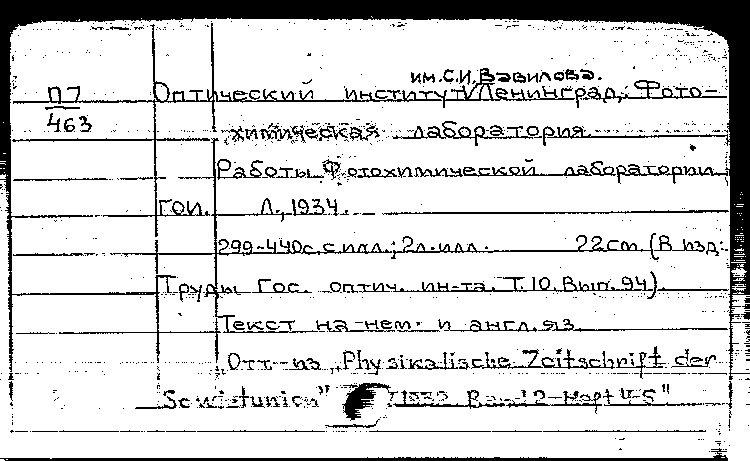 им. С.И. Вавилова.
П7
463
Оптический институт Ленинград, Фото-
химическая лаборатория.
Работы Фотохимической лаборатории
ГОИ. Л., 1934.
299-440с. с илл.; 2л. илл. 22см. (В изд:
Труды Гос. оптич. ин-та. Т. 10. Вып. 94).
Текст на нем. и англ. яз.
"Отт. из „Physikalische Zeitschrift der
Sowjetunion" 1932 Band 2-Heft 4-5"